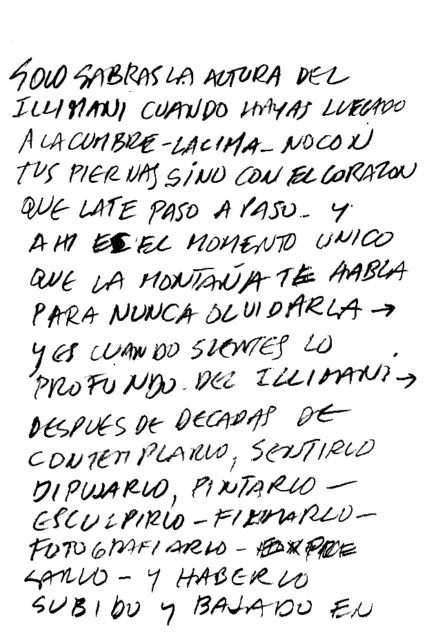 SOLO SABRAS LA ALTURA DEL
ILLIMANI CUANDO HAYAS LLEGADO
A LA CUMBRE - LA CIMA - NO CON
TUS PIERNAS SINO CON EL CORAZON
QUE LATE PASO A PASO - Y
AHI ES EL MOMENTO UNICO
QUE LA MONTAÑA TE HABLA
PARA NUNCA OLVIDARLA →
Y ES CUANDO SIENTES LO
PROFUNDO DEL ILLIMANI →
DESPUES DE DECADAS DE
CONTEMPLARLO, SENTIRLO
DIPUJARLO, PINTARLO -
ESCULPIRLO - FILMARLO -
FOTOGRAFIARLO - EXPRE
SARLO - Y HABERLO
SUBIDO Y BAJADO EN